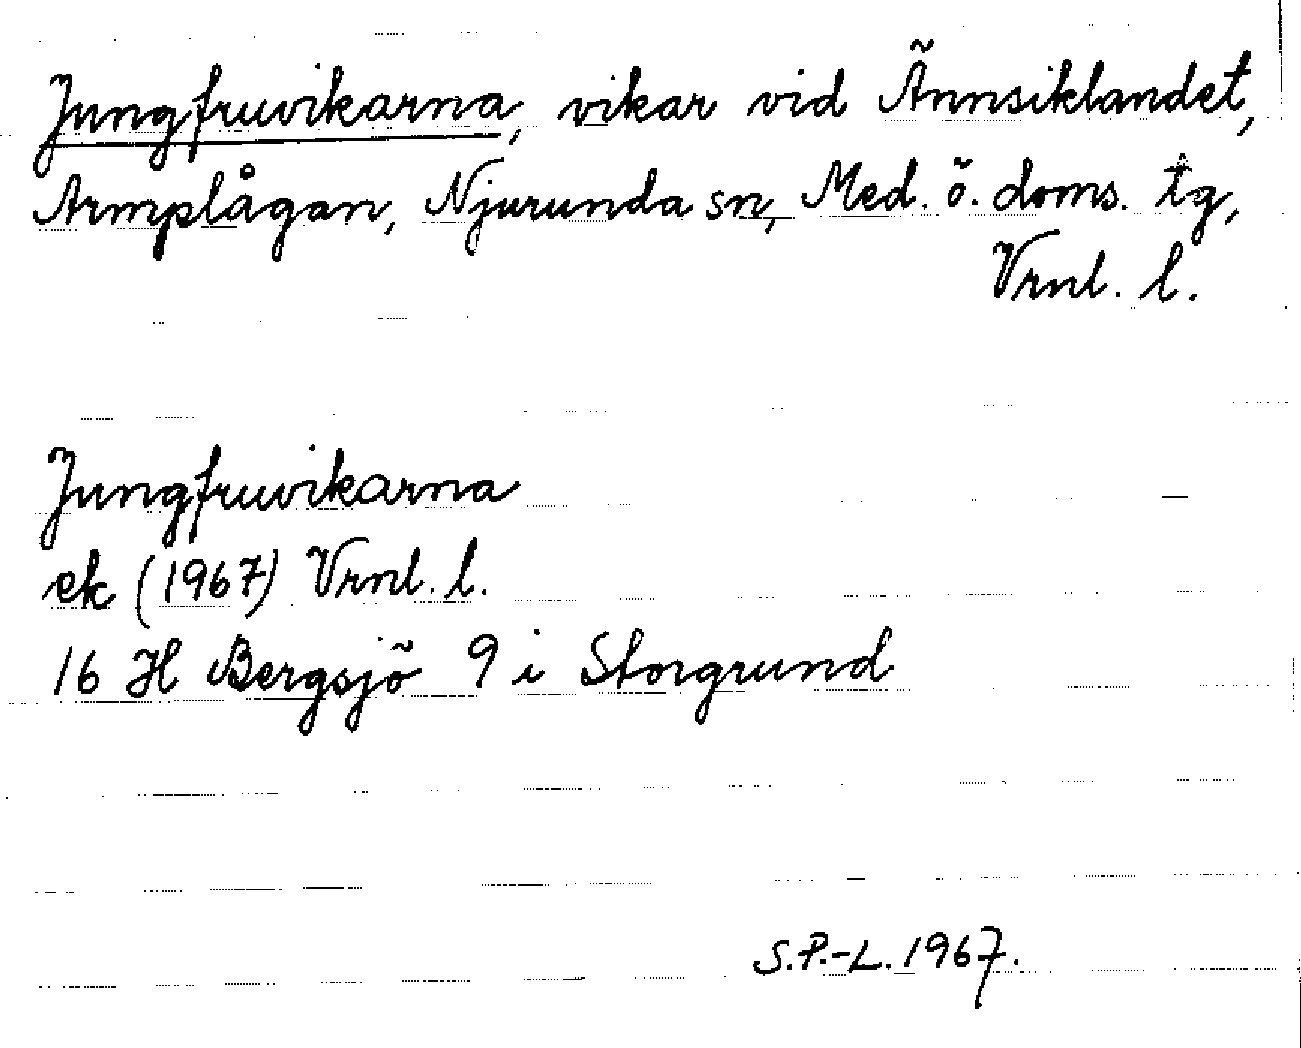 Jungfruvikarna, vikar vid Ännsiklandet,
Armplågan, Njurunda sn, Med. ö. doms. tg,
Vrnl. l.
Jungfruvikarna
ek (1967) Vrnl. l.
16 H Bergsjö 9 i Storgrund
S.P.-L. 1967.